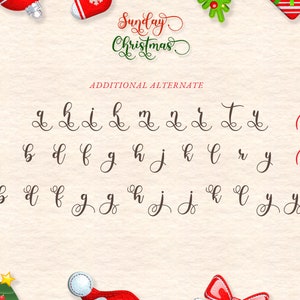 Sunday
Christmas
ADDITIONAL ALTERNATE
q h i k m n r t y
b d f g h j k l r y
b d f g g h j j k l y y